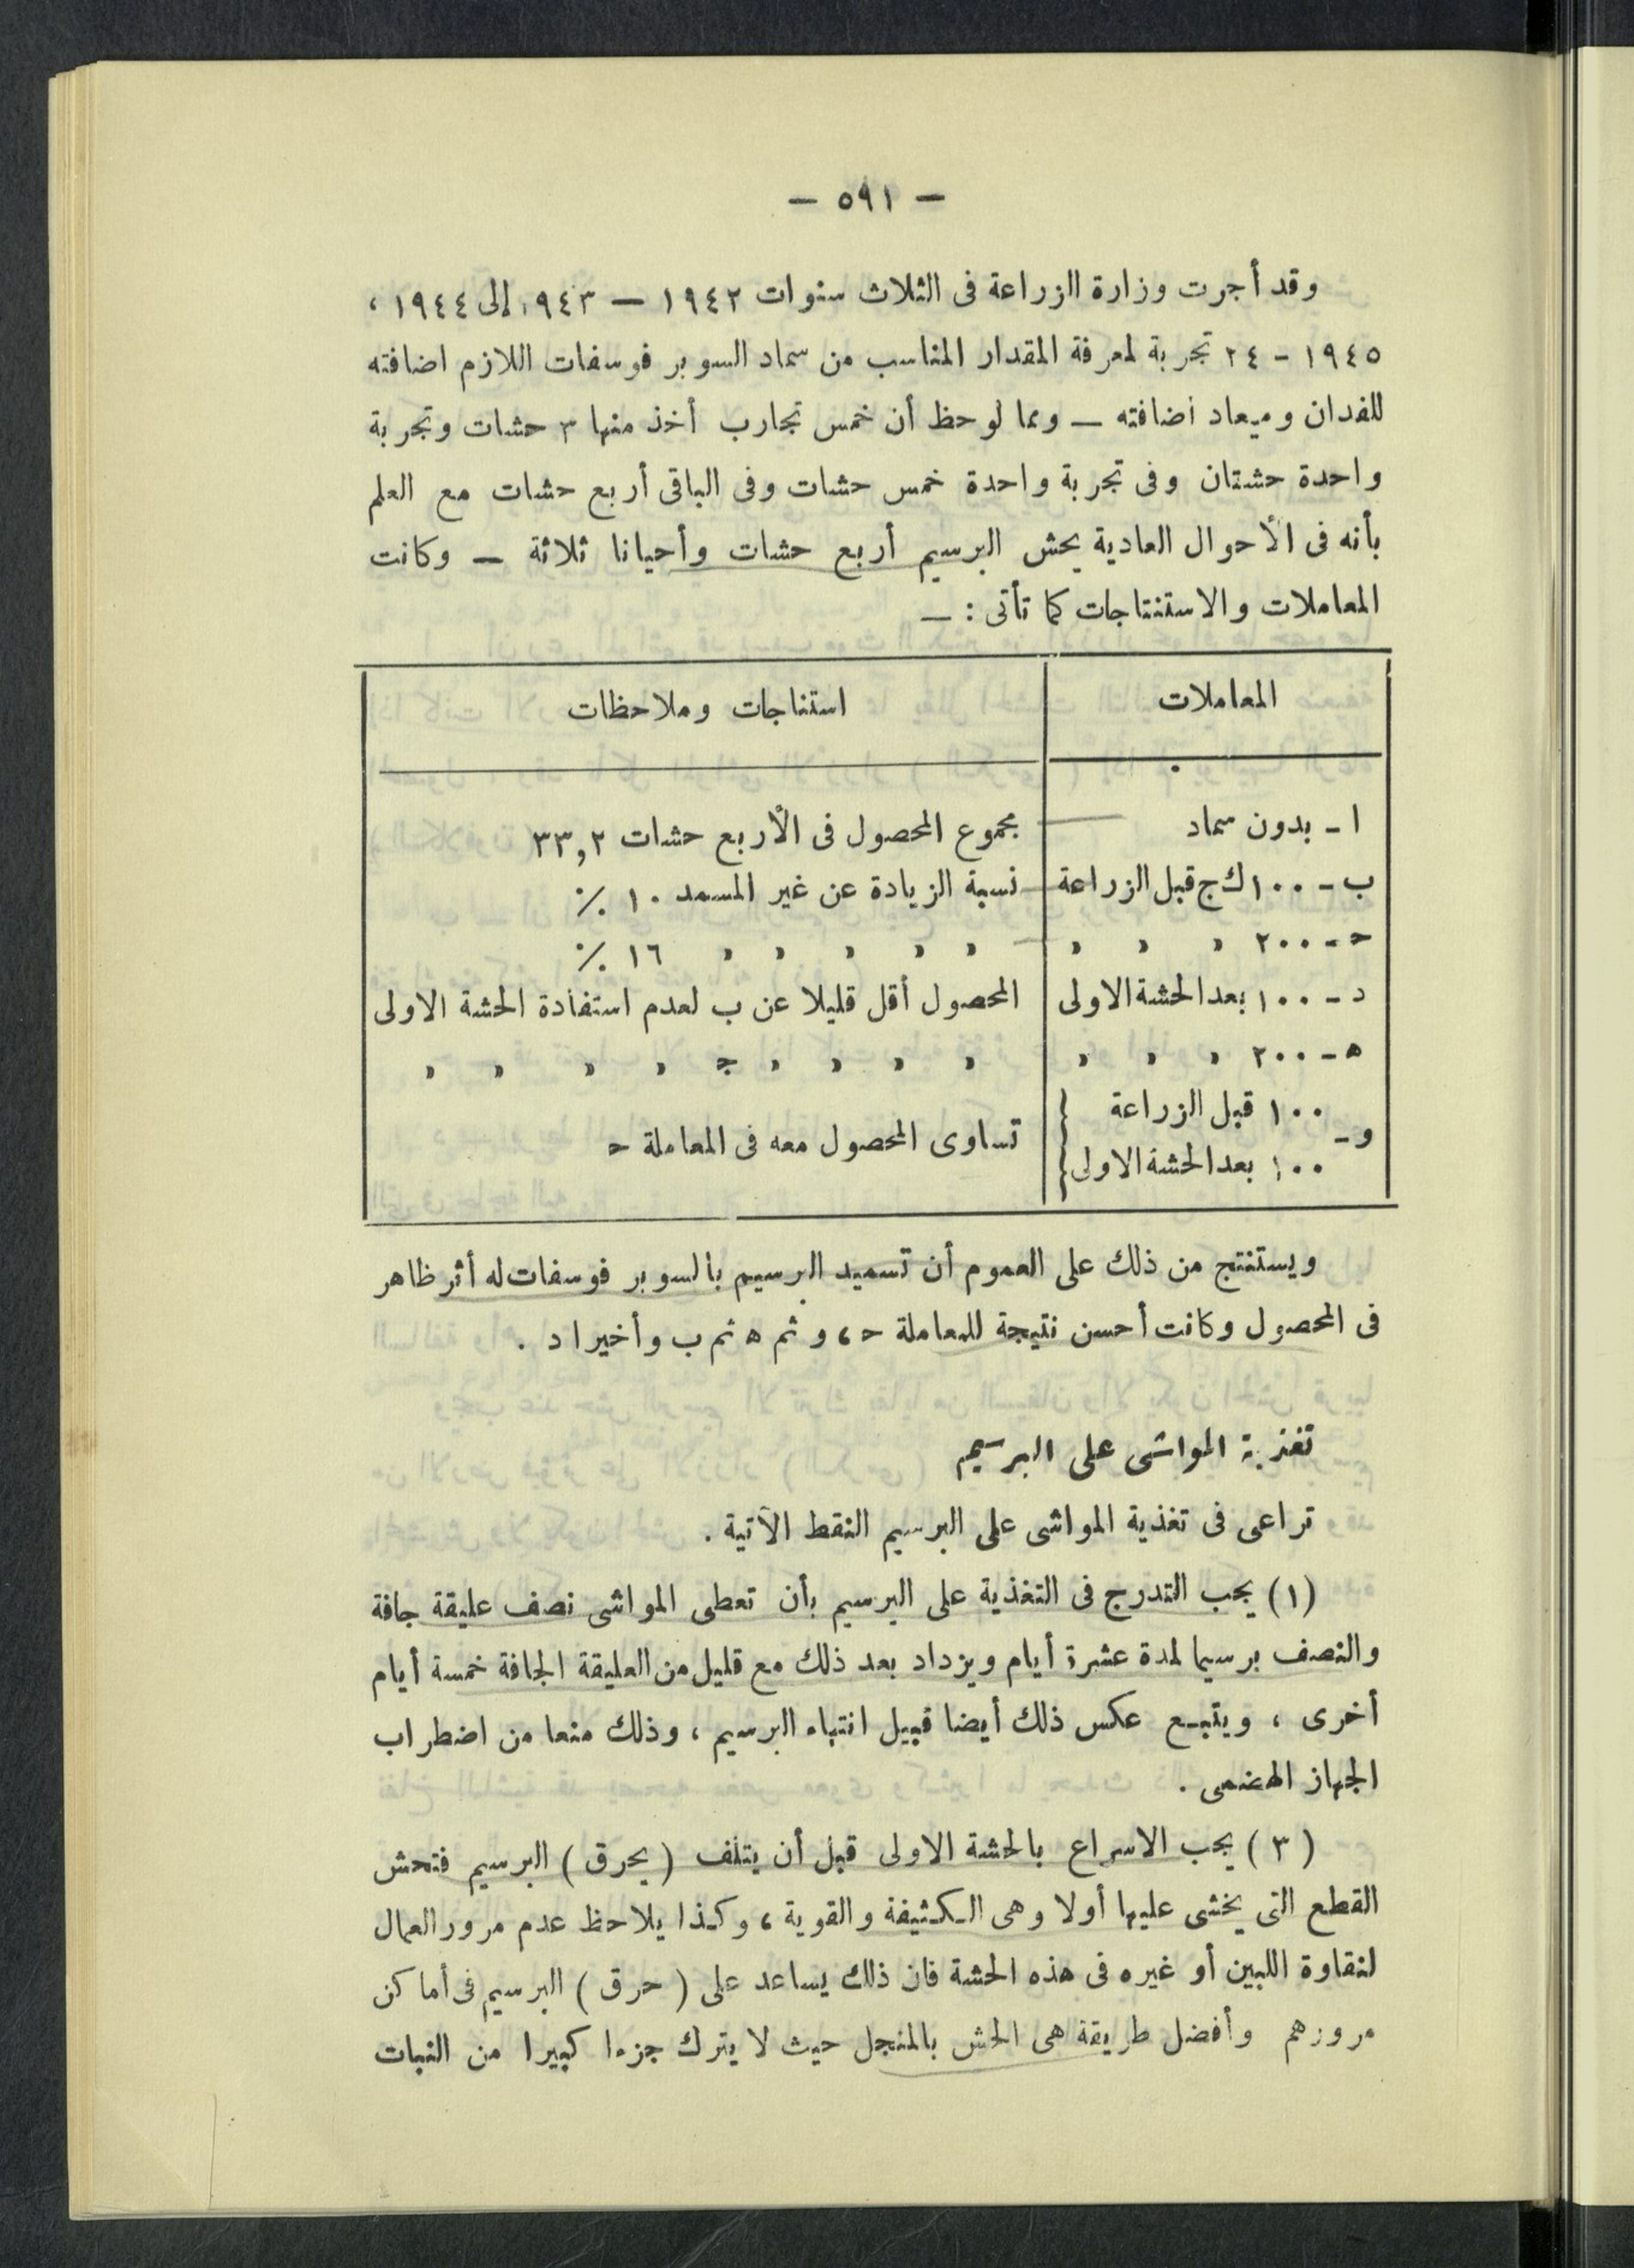 — ٥٩١ —
وقد أجرت وزارة الزراعة فى الثلاث سنوات ١٩٤٢ — ١٩٤٣ إلى ١٩٤٤ ،
١٩٤٥ - ٢٤ تجربة لمعرفة المقدار المناسب من سماد السوبر فوسفات اللازم اضافته
للفدان وميعاد اضافته — ومما لوحظ أن خمس تجارب أخذ منها ٣ حشات وتجربة
واحدة حشتان وفى تجربة واحدة خمس حشات وفى الباقى أربع حشات مع العلم
بأنه فى الأحوال العادية يحش البرسيم أربع حشات وأحيانا ثلاثة — وكانت
المعاملات والاستنتاجات كما تأتى : —
المعاملات استناجات وملاحظات
ا - بدون سماد مجموع المحصول فى الأربع حشات ٣٣,٢
ب - ١٠٠ ك ج قبل الزراعة نسبة الزيادة عن غير المسمد ١٠ ٪
ﺣ - ٢٠٠ « « « « « « « « ١٦ ٪
د - ١٠٠ بعد الحشة الاولى المحصول أقل قليلا عن ب لعدم استفادة الحشة الاولى
ه - ٢٠٠ « « « « « « « ج « « « « «
و - { ١٠٠ قبل الزراعة
تساوى المحصول معه فى المعاملة ﺣ
١٠٠ بعد الحشة الاولى
ويستنتج من ذلك على العموم أن تسميد البرسيم بالسوبر فوسفات له أثر ظاهر
فى المحصول وكانت أحسن نتيجة للمعاملة ﺣ ، و ثم ه ثم ب وأخيرا د .
تغذية المواشى على البرسيم
تراعى فى تغذية المواشى على البرسيم النقط الآتية .
(١) يجب التدرج فى التغذية على البرسيم بأن تعطى المواشى نصف عليقة جافة
والنصف برسيما لمدة عشرة أيام ويزداد بعد ذلك مع قليل من العليقة الجافة خمسة أيام
أخرى ، ويتبع عكس ذلك أيضا قبيل انتهاء البرسيم ، وذلك منعا من اضطراب
الجهاز الهضمى .
( ٣ ) يجب الاسراع بالحشة الاولى قبل أن يتلف ( يحرق ) البرسيم فتحش
القطع التى يخشى عليها أولا وهى الكثيفة والقوية ، وكذا يلاحظ عدم مرور العمال
لنقاوة اللبين أو غيره فى هذه الحشة فان ذلك يساعد على ( حرق ) البرسيم فى أماكن
مرورهم وأفضل طريقة هى الحش بالمنجل حيث لا يترك جزءا كبيرا من النبات